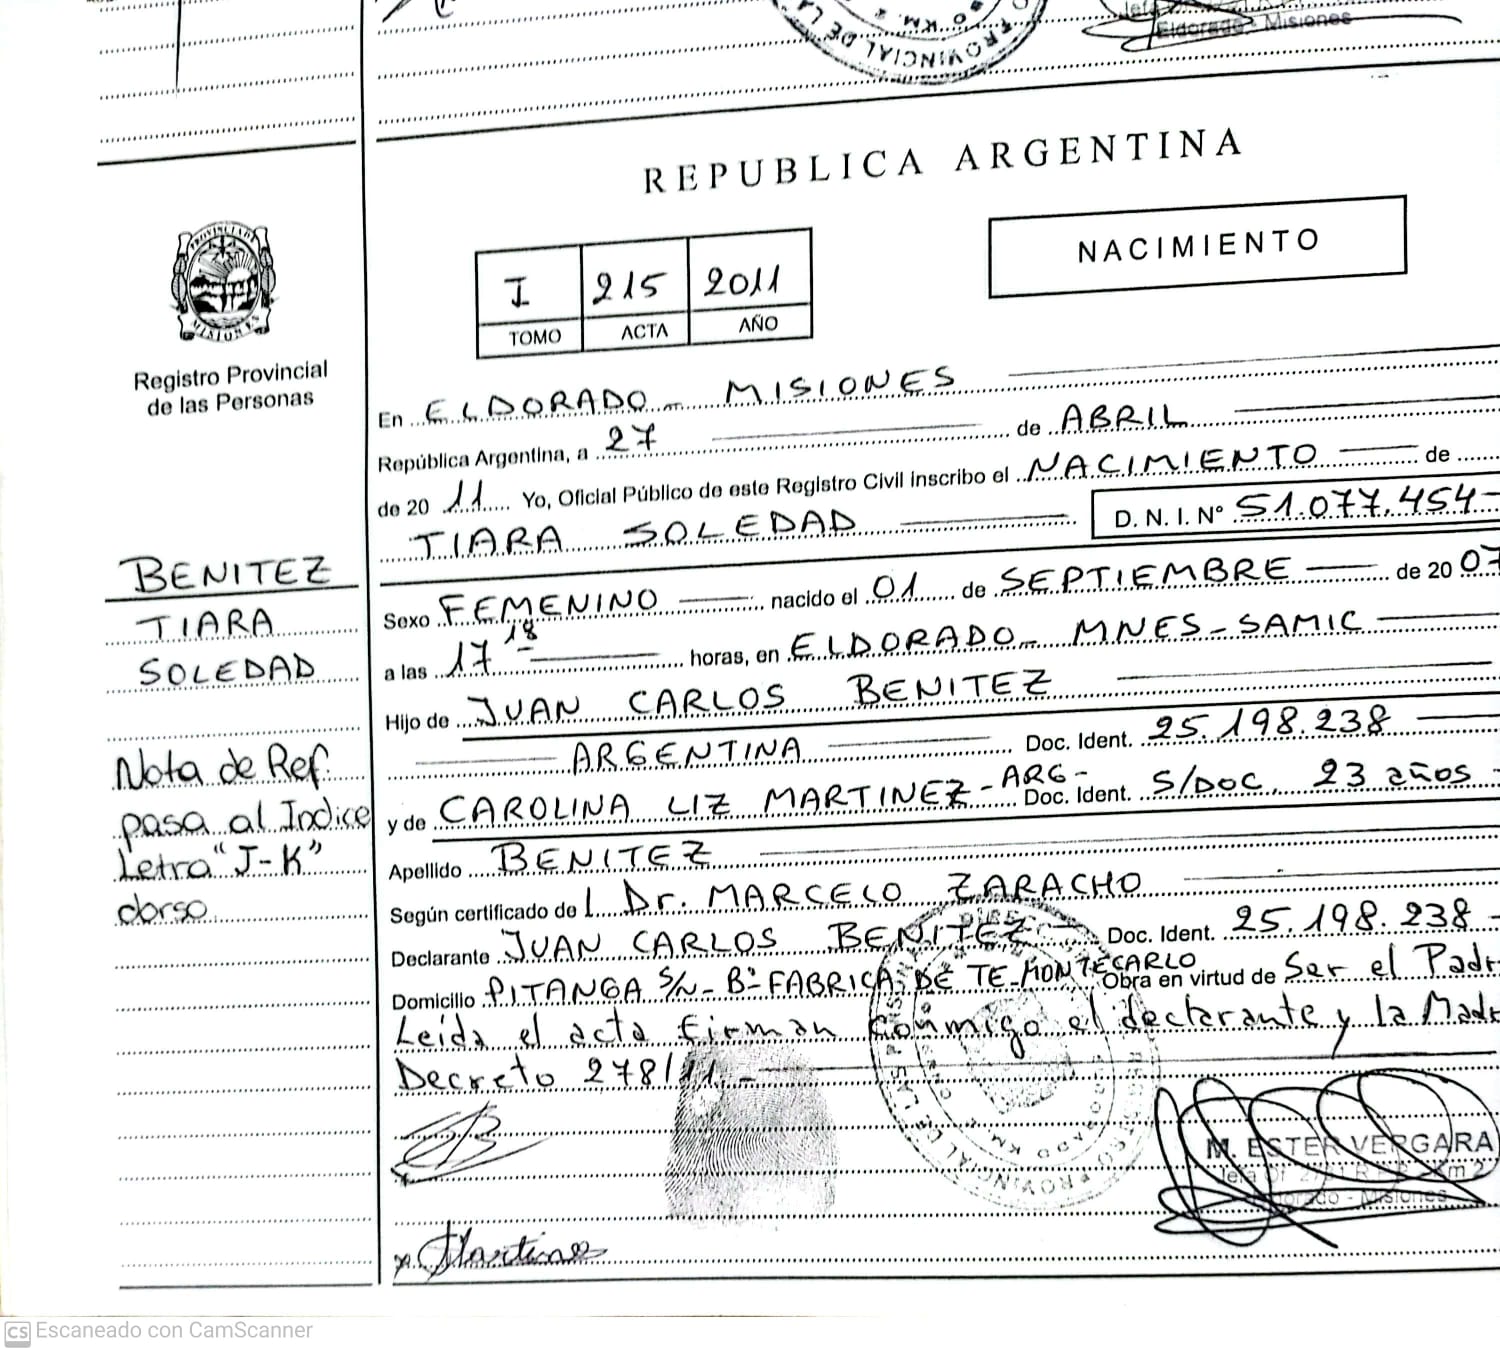 Eldorado - Misiones
REPUBLICA ARGENTINA
NACIMIENTO
I 215 2011
TOMO ACTA AÑO
PROVINCIA DE
MISIONES
Registro Provincial
de las Personas
En ELDORADO - MISIONES
República Argentina, a 27 de ABRIL
de 2011 Yo, Oficial Público de este Registro Civil inscribo el NACIMIENTO de
TIARA SOLEDAD D. N. I. Nº 51.077.454-
Sexo FEMENINO nacido el 01 de SEPTIEMBRE de 2007
a las 17 18 horas, en ELDORADO - MNES - SAMIC
Hijo de JUAN CARLOS BENITEZ
ARGENTINA Doc. Ident. 25.198.238
y de CAROLINA LIZ MARTINEZ - ARG - Doc. Ident. S/DOC 23 años
Apellido BENITEZ
Según certificado de l Dr. MARCELO ZARACHO
Declarante JUAN CARLOS BENITEZ Doc. Ident. 25.198.238 -
Domicilio PITANGA S/N - Bº FABRICA DE TE - MONTECARLO Obra en virtud de Ser el Padr
Leída el acta firman conmigo el declarante y la Madr
Decreto 278/11 -
M. ESTER VERGARA
Martinez
BENITEZ
TIARA
SOLEDAD
Nota de Ref.
pasa al Indice
Letra "J-K"
dorso
CS Escaneado con CamScanner